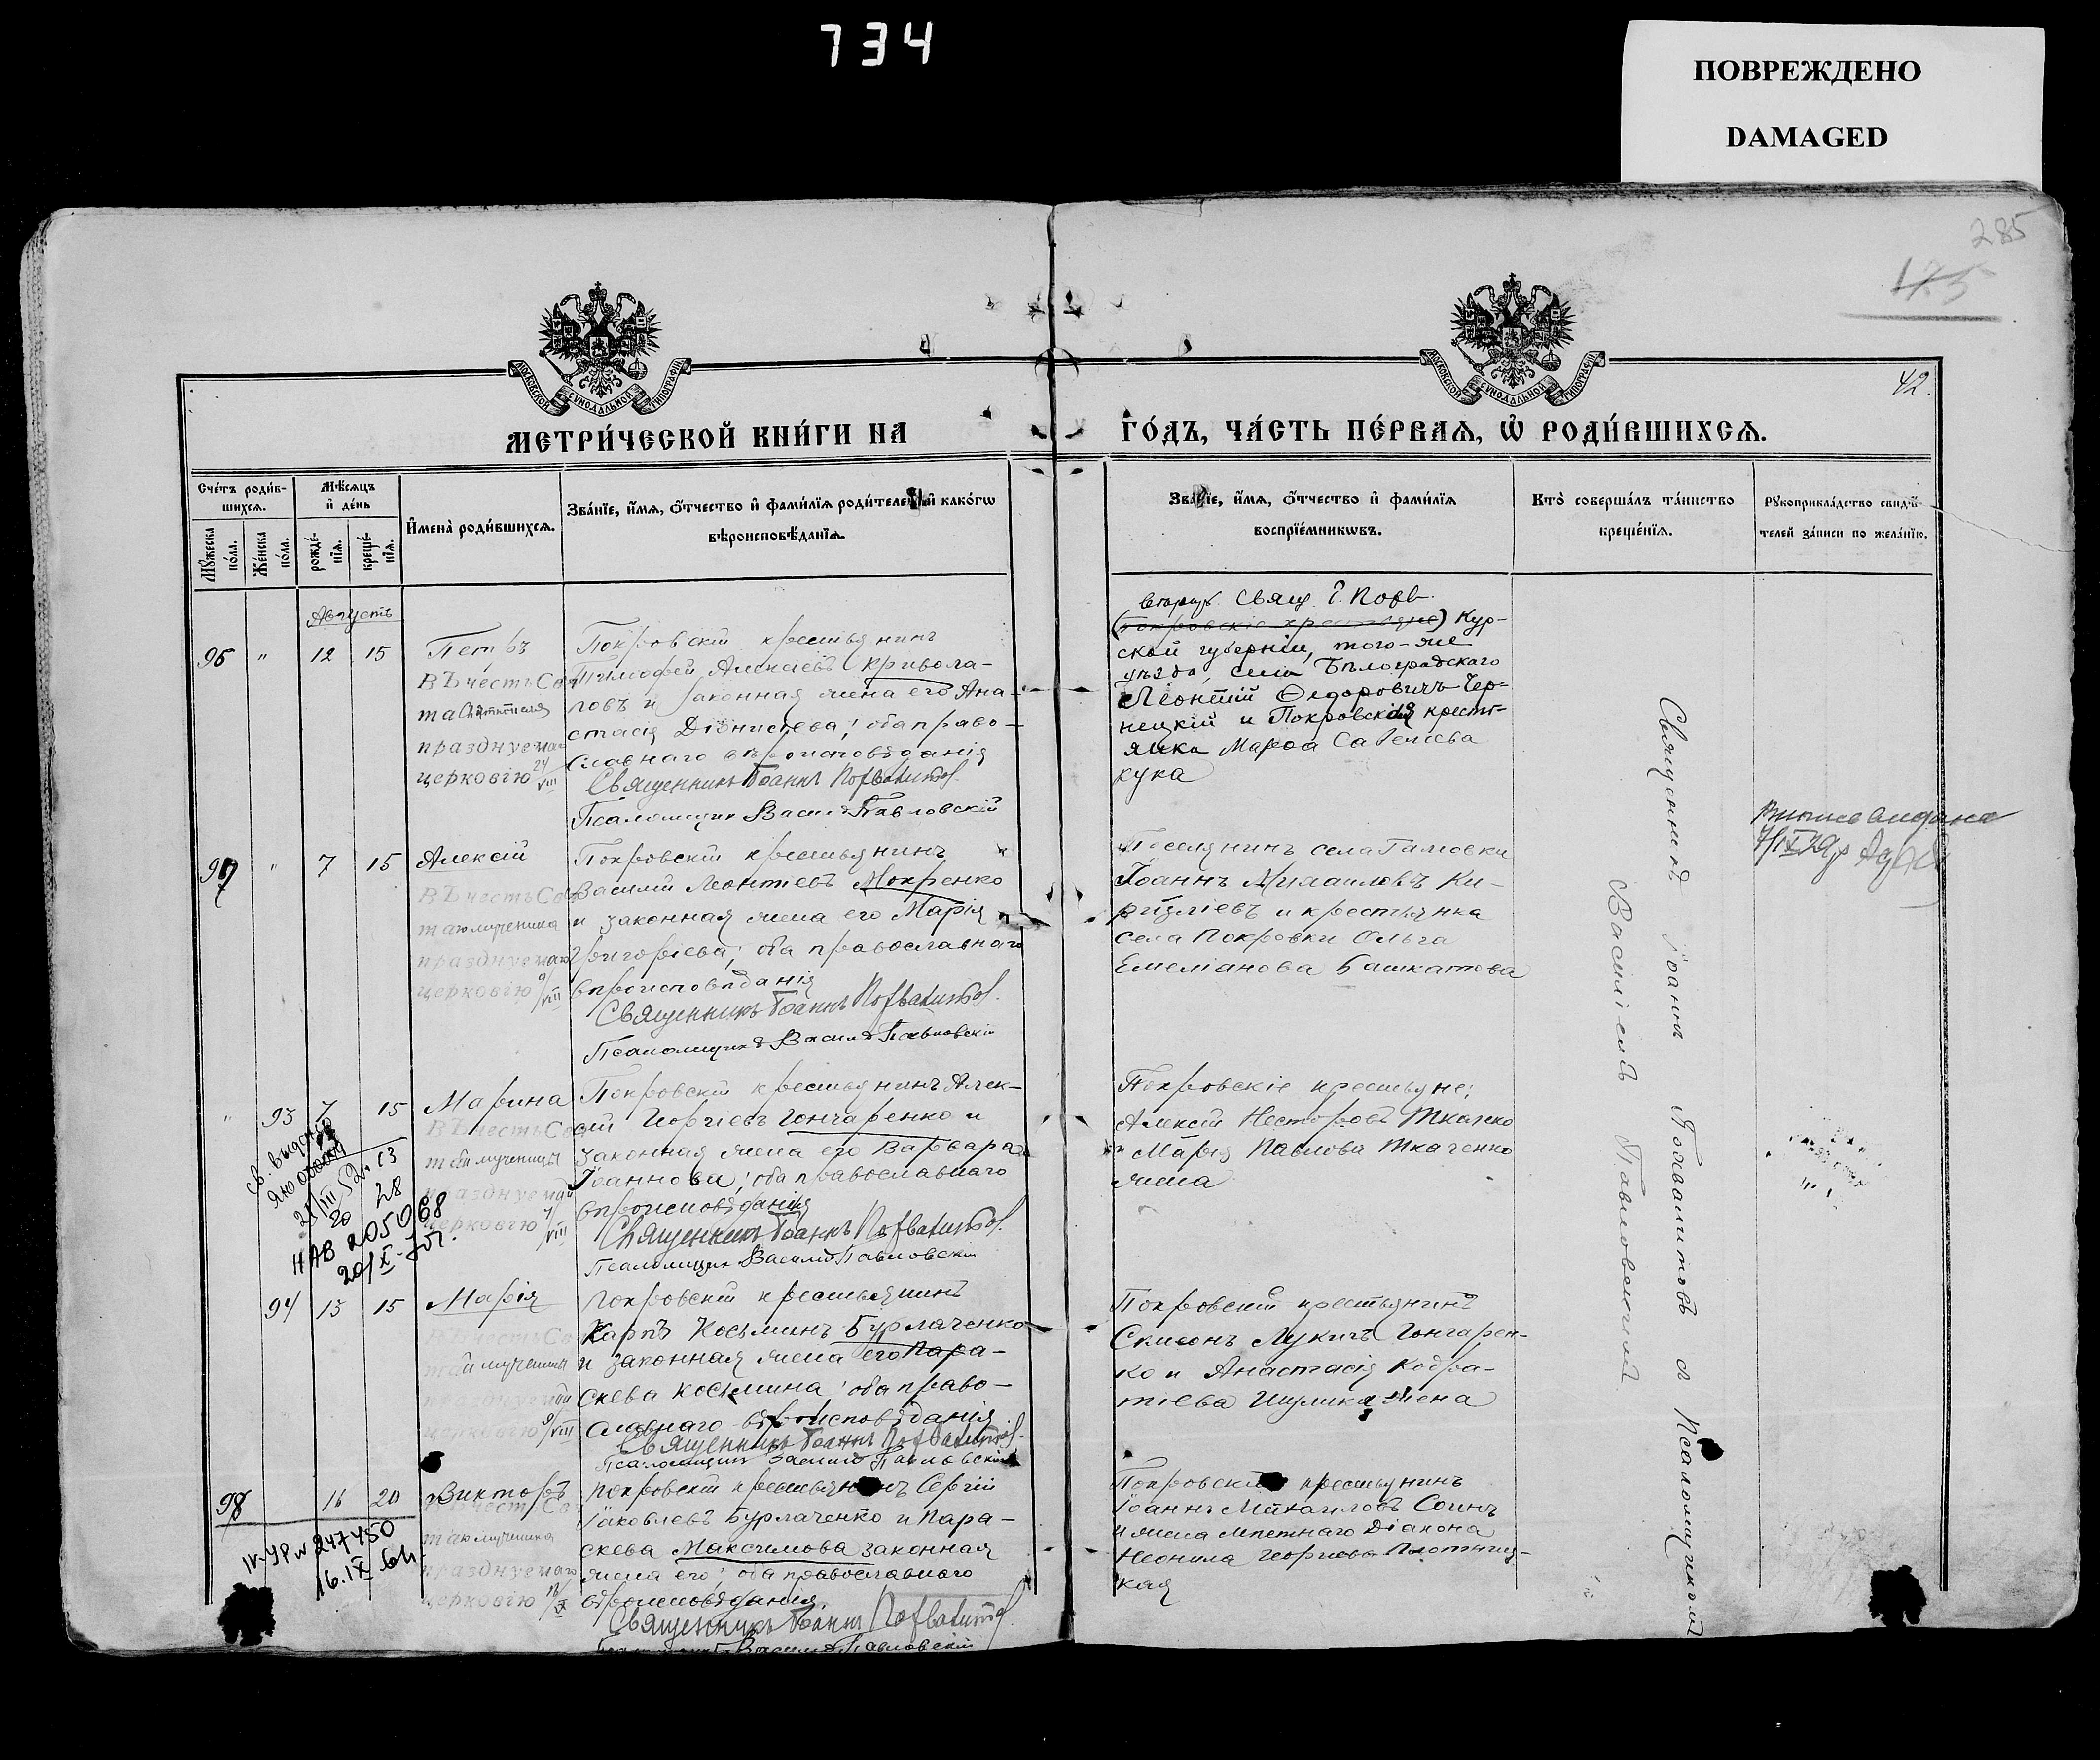 734
ПОВРЕЖДЕНО
DAMAGED
285
175
42.
МОСКОВСКОЙ СУНОДАЛЬНОЙ ТИПОГРАФІИ
МОСКОВСКОЙ СУНОДАЛЬНОЙ ТИПОГРАФІИ
МЕТРИ́ЧЕСКОЙ КНИ́ГИ НА
ГО́ДЪ, ЧА́СТЬ ПЕ́РВАѦ, Ѡ҆ РОДИ́ВШИХСѦ.
Сче́тъ роди́в-
шихсѧ.
Мѣ́сѧцъ
и҆ де́нь
Мꙋ́жеска по́ла.
Же́нска по́ла.
рожде́-
нїѧ.
креще́-
нїѧ.
И҆мена̀ роди́вшихсѧ.
Зва́нїе, и҆́мѧ, ѻ҆́тчество и҆ фами́лїѧ роди́телей, и҆ како́гѡ
вѣроисповѣ́данїѧ.
Зва́нїе, и҆́мѧ, ѻ҆́тчество и҆ фами́лїѧ
воспрїе́мникѡвъ.
Кто̀ соверша́лъ та́инство
креще́нїѧ.
Рꙋкоприкла́дство свидѣ́-
телей за́писи по жела́нїю.
Августъ
96 " 12 15
Петръ
ВЪ честь Свя
та Святителя
празднуемаго
церковію 24/VIII
Покровскій крестьянинъ
Тимофей Алексіевъ Кривола-
повъ и законная жена его Ана-
стасія Діонисіева; оба право-
славнаго вѣроисповѣданія
Священникъ Іоаннъ Похвалитовъ
Псаломщикъ Василій Павловскій
(Покровскіе крестьяне) Кур-
ской губерніи, того-же
уѣзда, села Бѣлоградскаго
Леонтій Ѳедоровичъ Чер-
нецкій и Покровская кресть-
янка Марѳа Савеліева
кука
97 " 7 15
Алексій
ВЪ честь Свя
таго мученика
празднуемаго
церковію 9/VIII
Покровскій крестьянинъ
Василій Леонтіевъ Мокренко
и законная жена его Марія
Григоріева; оба православнаго
вѣроисповѣданія
Священникъ Іоаннъ Похвалитовъ
Псаломщикъ Василій Павловскій
Поселянинъ села Тимовки
Іоаннъ Михаиловъ Ки-
и крестьянка
села Покровки Ольга
Емеліанова Башкатова
" 93 7 15
Марина
ВЪ честь Свя
той мученицы
празднуемой
церковію 7/VIII
Покровскій крестьянинъ Алек-
сій Георгіевъ Гончаренко и
законная жена его Варвара
Іоаннова; оба православнаго
вѣроисповѣданія
Священникъ Іоаннъ Похвалитовъ
Псаломщикъ Василій Павловскій
Покровскіе крестьяне:
Алексій Несторовъ Ткаченко
и Марія Павлова Ткаченко
жена
94 13 15
Марія
ВЪ честь Свя
той мученицы
празднуемой
церковію 9/VIII
Покровскій крестьянинъ
Карпъ Косьминъ Бурлаченко
и законная жена его Пара-
скева Косьмина; оба право-
славнаго вѣроисповѣданія
Священникъ Іоаннъ Похвалитовъ
Псаломщикъ Василій Павловскій
Покровскій крестьянинъ
Симонъ Лукичъ Гончарен-
ко и Анастасія Кодра-
тіева Шулика жена
98 16 20
Викторъ
ВЪ честь Свя
таго мученика
празднуемаго
церковію
Покровскій крестьянинъ Сергій
Іаковлевъ Бурлаченко и Пара-
скева Максимова законная
жена его; оба православнаго
вѣроисповѣданія.
Священникъ Іоаннъ Похвалитовъ
Псаломщикъ Василій Павловскій
Покровскій крестьянинъ
Іоаннъ Михаиловъ Соинъ
и жена Діакона
Неонила Георгіева Плотниц-
кая
IV-УР № 247450
16.IX.
НАВ 205068
Священникъ Іоаннъ Похвалитовъ съ Псаломщикомъ
Василіемъ Павловскимъ